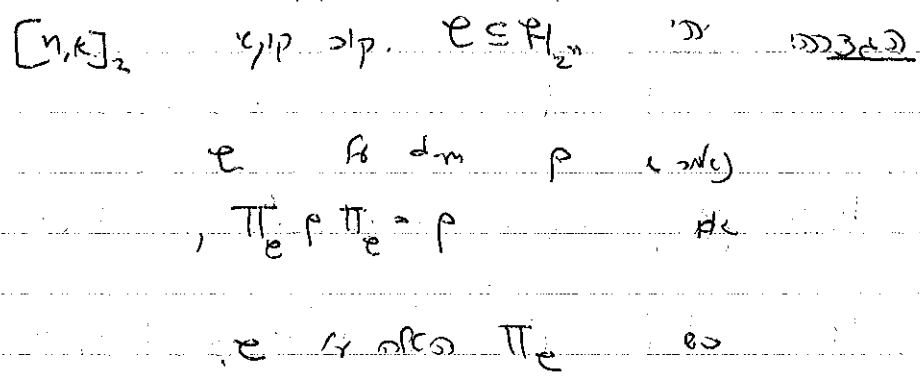 הגדרה: יהי $\mathcal{C} \subseteq \mathcal{H}_{2^n}$. קוד קוונטי $[n,k]_2$
נאמר ש ρ dm על $\mathcal{C}$
אם $\Pi_{\mathcal{C}} \rho \Pi_{\mathcal{C}} = \rho$,
כש $\Pi_{\mathcal{C}}$ הטלה על $\mathcal{C}$.